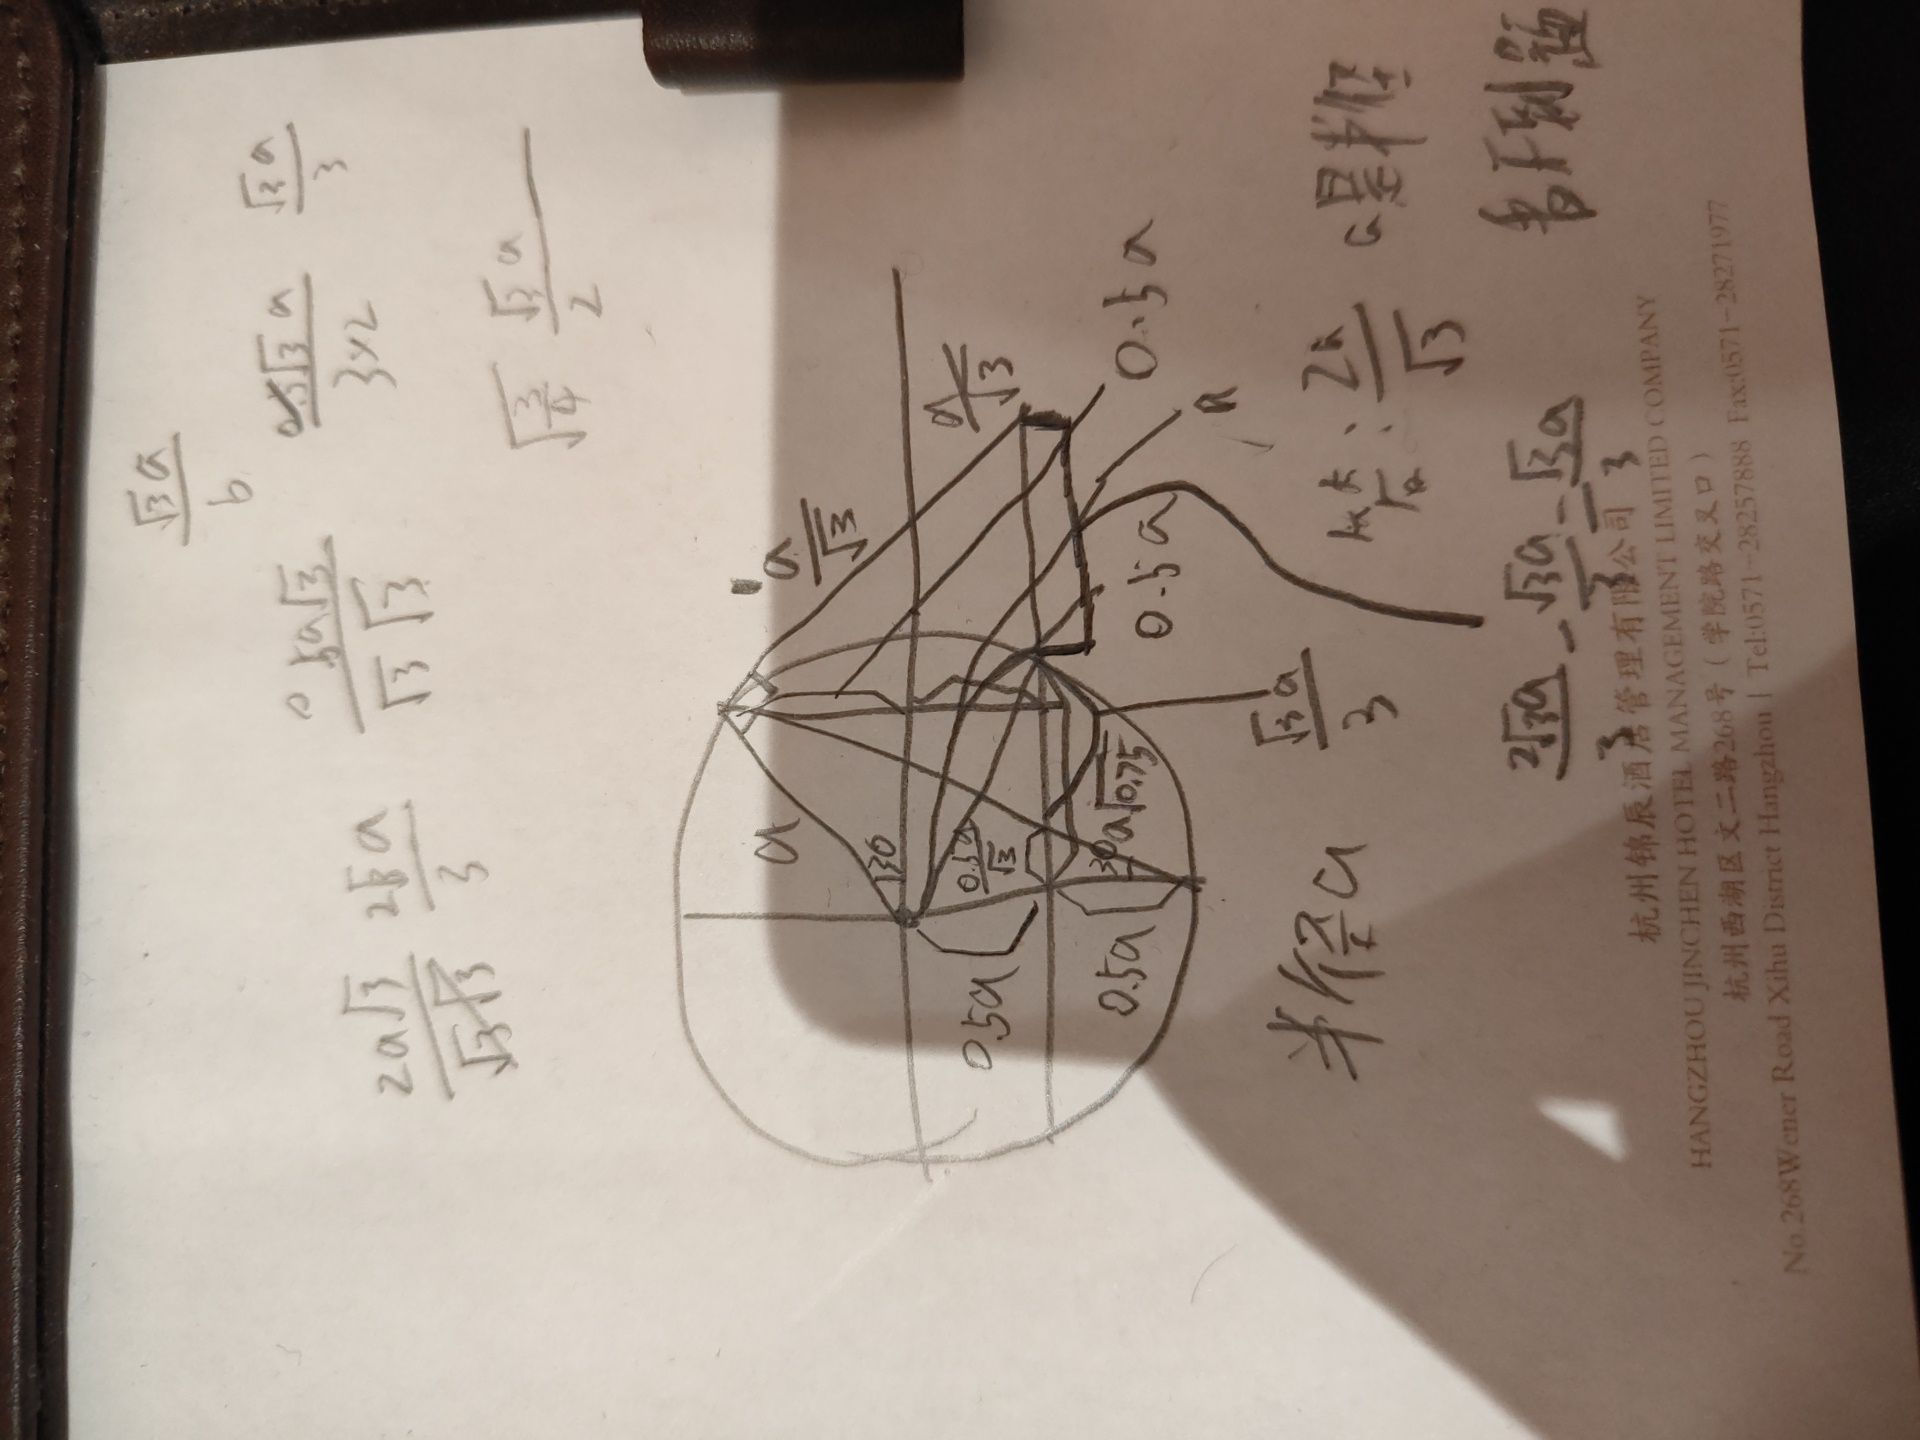 √3a/6
0.5a√3/3×2
√3a/3
0.5a√3/√3√3
√(3/4)
√3a/2
2a√3/√3√3
2√3a/3
a/√3
a/√3
a
30
0.5a
a
0.5a/√3
30
a√0.75
0.5a
0.5a
0.5a
√3a/3
半径a
2a/√3
a是半径
2√3a/3 - √3a/3 - √3a/3
杭州锦辰酒店管理有限公司
HANGZHOU JINCHEN HOTEL MANAGEMENT LIMITED COMPANY
杭州西湖区文二路268号（学院路交叉口）
No.268Wener Road Xihu District Hangzhou | Tel:0571-28257888 Fax:0571-28271977